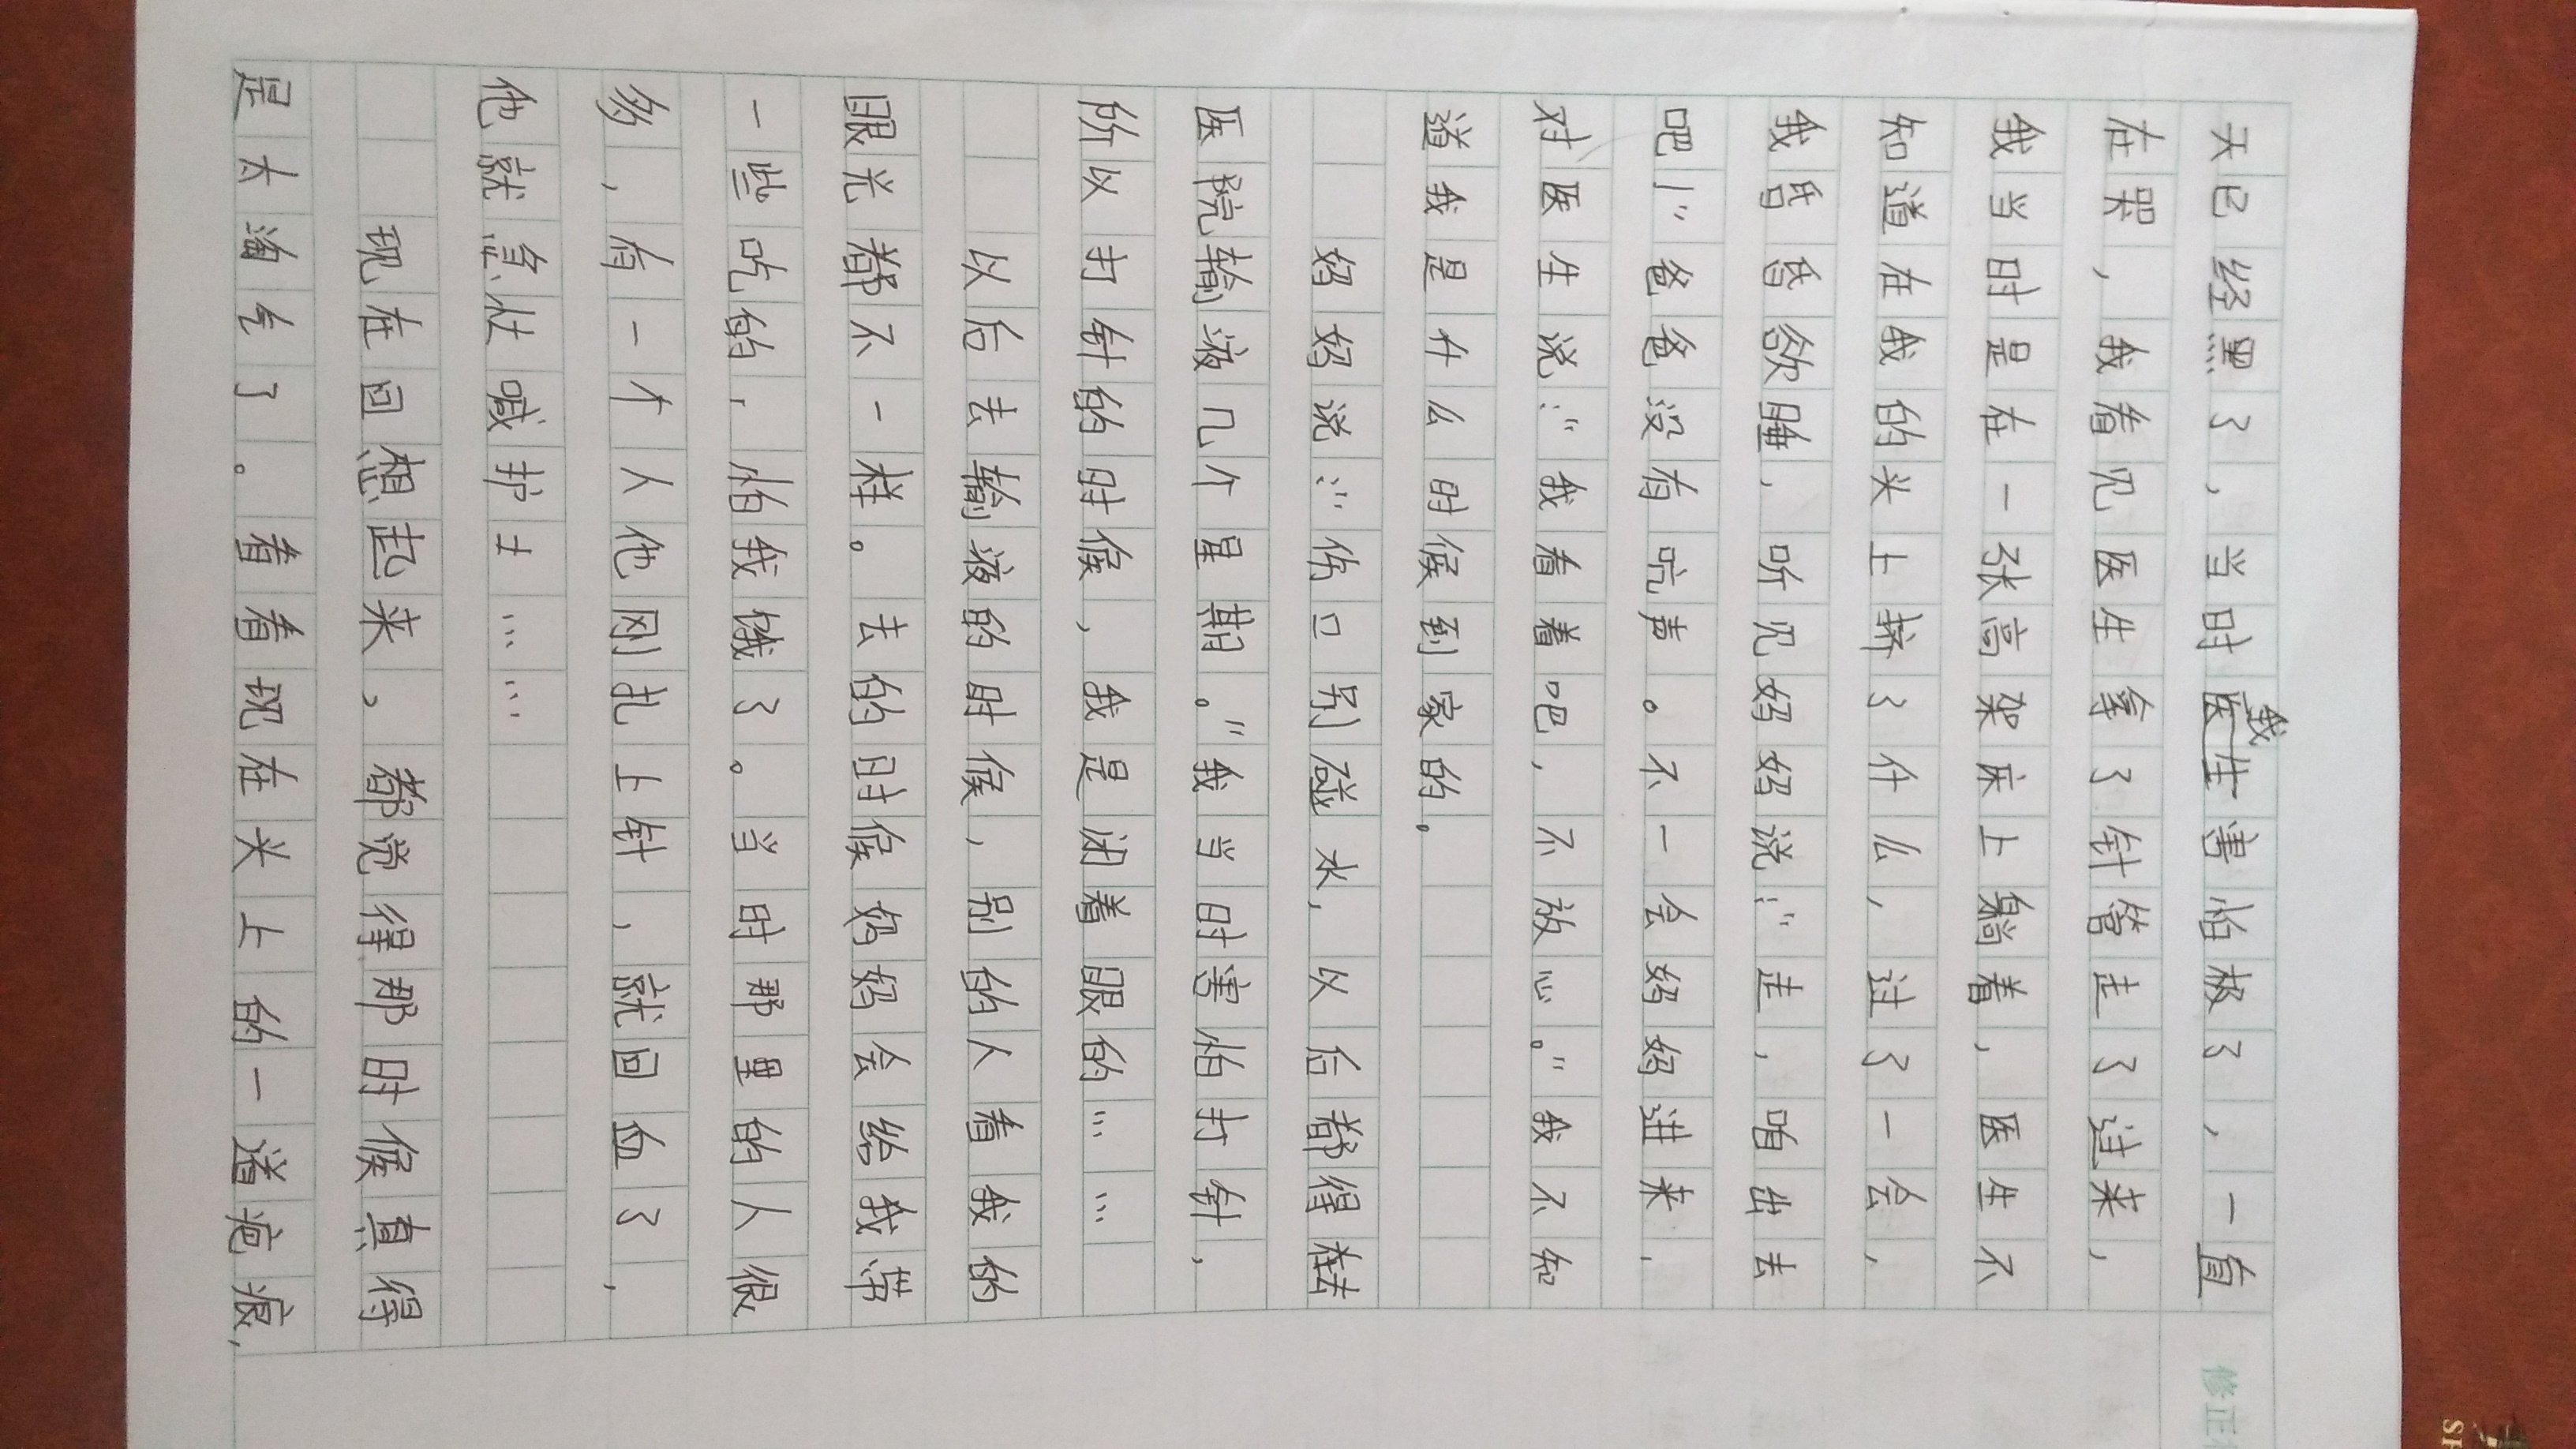 天已经黑了，当时我害怕极了，一直
在哭，我看见医生拿了针管走了过来，
我当时是在一张高架床上躺着，医生不
知道在我的头上挤了什么，过了一会，
我昏昏欲睡，听见妈妈说：“走，咱出去
吧！”爸爸没有吭声。不一会妈妈进来，
对医生说：“我看着吧，不放心。”我不知
道我是什么时候到家的。
妈妈说：“伤口别碰水，以后都得去
医院输液几个星期。”我当时害怕打针，
所以打针的时候，我是闭着眼的……
以后去输液的时候，别的人看我的
眼光都不一样。去的时候妈妈会给我带
一些吃的，怕我饿了。当时那里的人很
多，有一个人他刚扎上针，就回血了，
他就急忙喊护士……
现在回想起来，都觉得那时候真得
是太淘气了。看看现在头上的一道疤痕，
修正